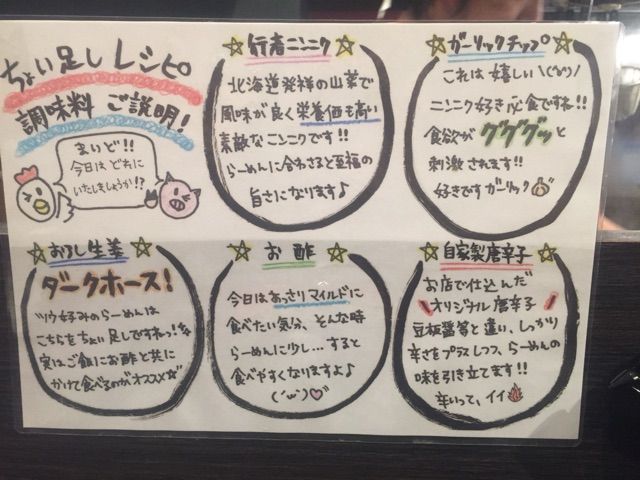 ちょい足しレシピ
調味料 ご説明!
まいど!!
今日はどれに
いたしましょうか!?
☆行者ニンニク☆
北海道発祥の山菜で
風味が良く栄養価も高い
素敵なニンニクです!!
らーめんに合わさると至福の
旨さになります♪
☆ガーリックチップ☆
これは嬉しい\(^o^)/
ニンニク好き必食ですね!!
食欲がグググッと
刺激されます!!
好きですガーリック
☆おろし生姜☆
ダークホース!
ツウ好みのらーめんは
こちらをちょい足しですねっ!
実はご飯にお酢と共に
かけて食べるのがオススメ☆
☆お酢☆
今日はあっさりマイルドに
食べたい気分、そんな時
らーめんに少し...すると
食べやすくなりますよ♪
(´ω`)♡
☆自家製唐辛子☆
お店で仕込んだ
オリジナル唐辛子
豆板醤等と違い、しっかり
辛さをプラスしつつ、らーめんの
味を引き立てます!!
辛いって、イイ